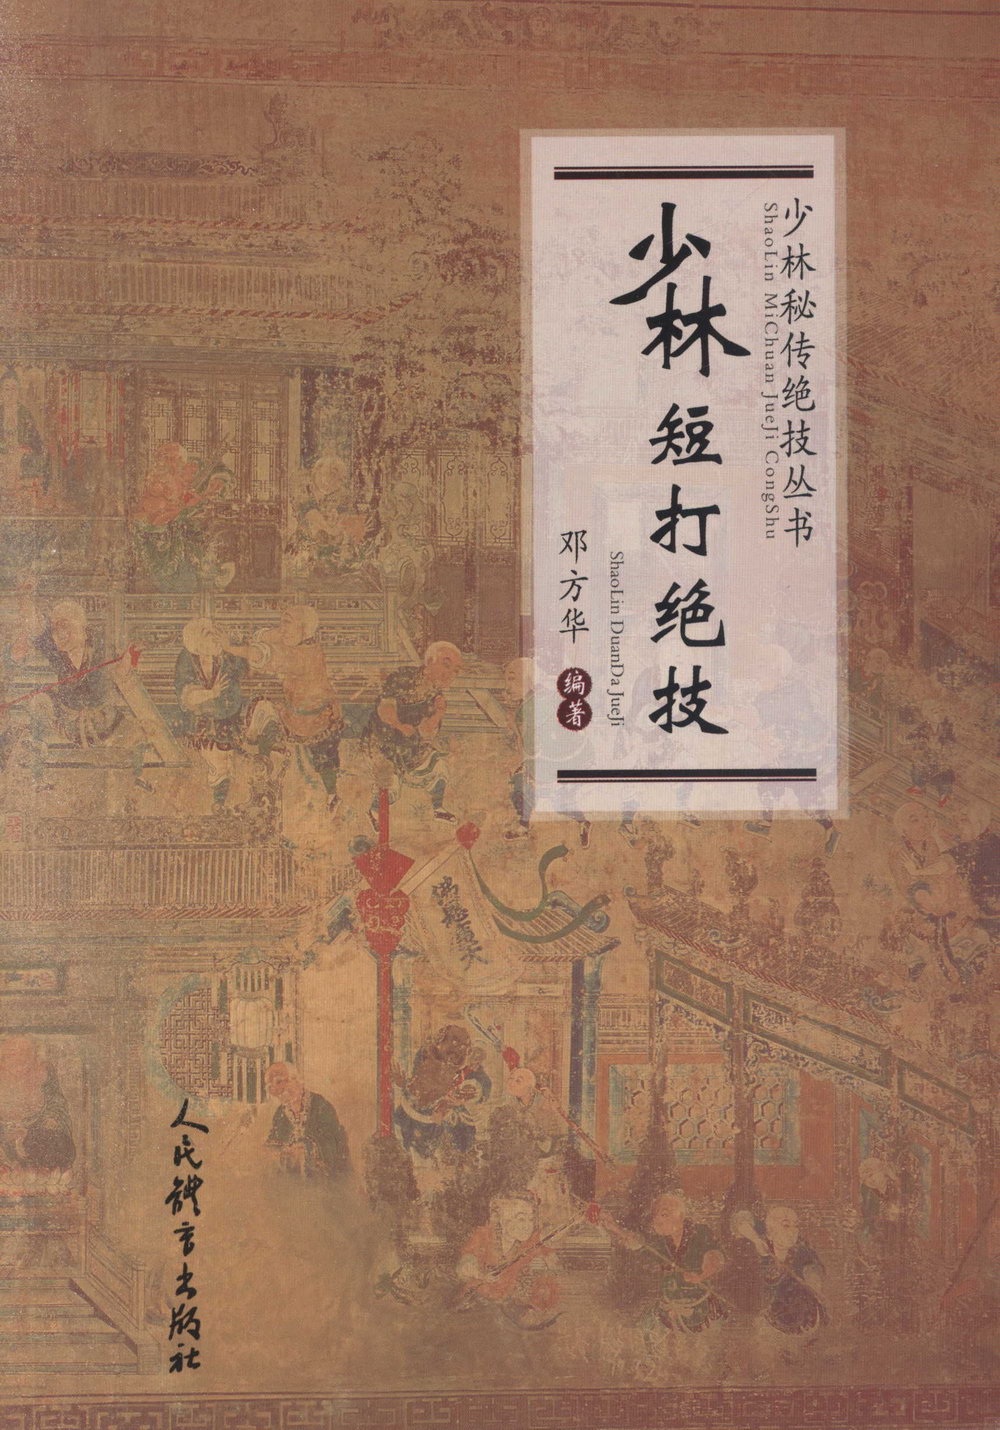 少林秘传绝技丛书
ShaoLin MiChuan JueJi CongShu
少林短打绝技
ShaoLin DuanDa JueJi
邓方华
编著
人民體育出版社